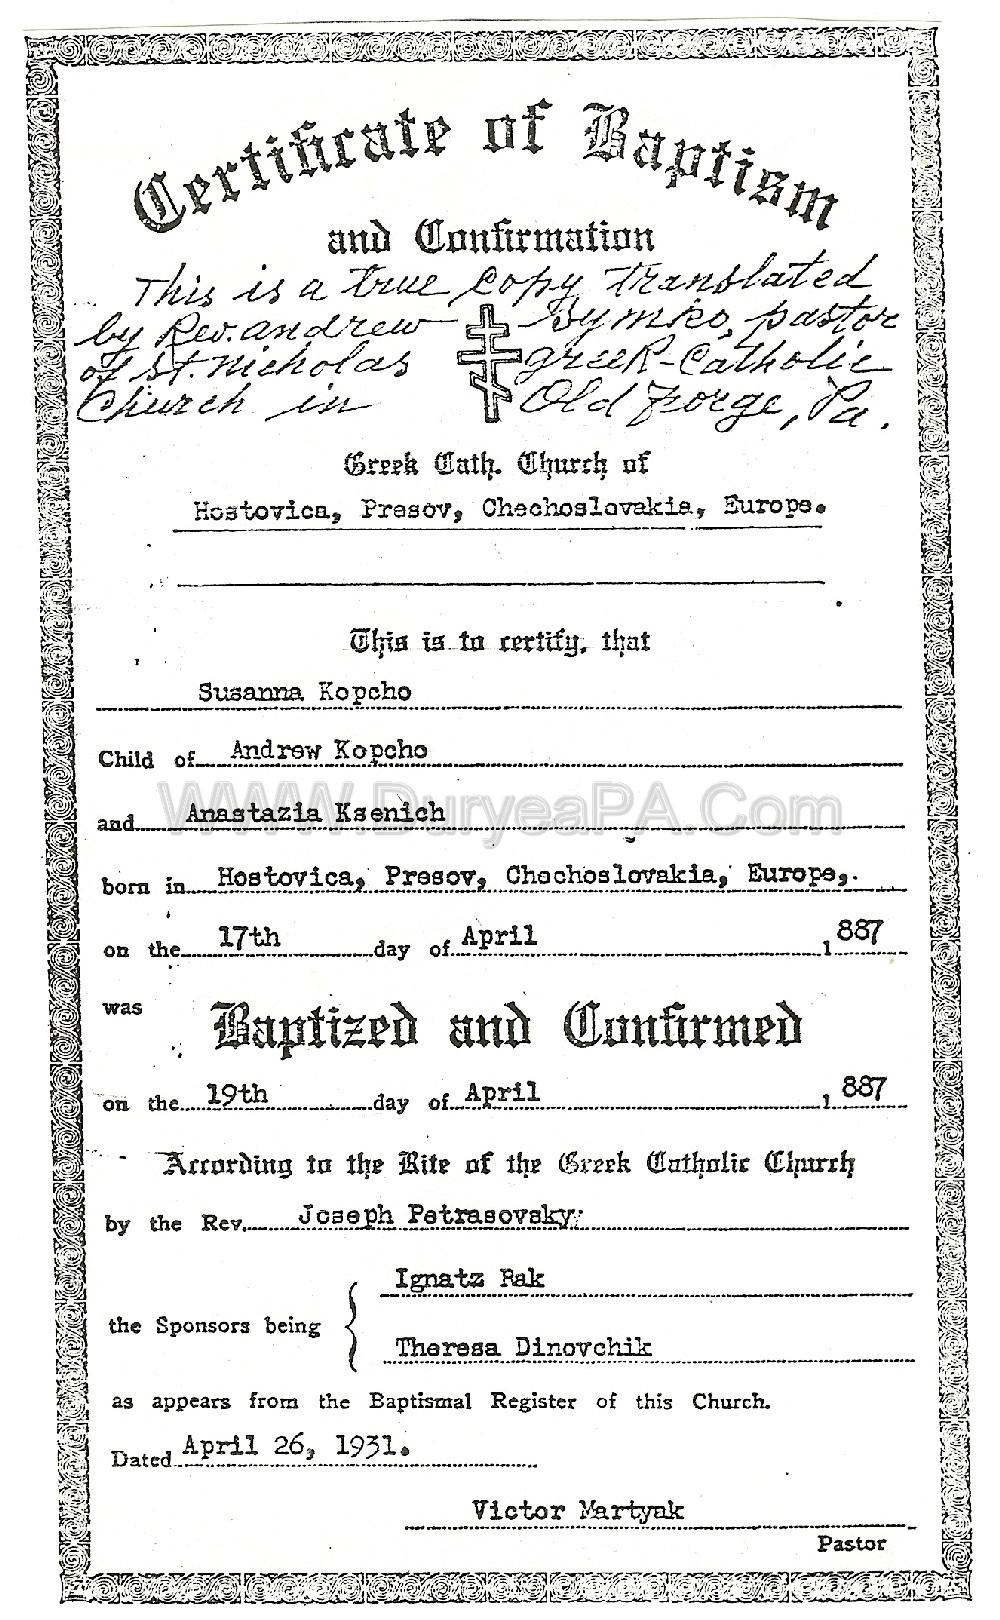 Certificate of Baptism
and Confirmation
This is a true copy translated
by Rev. Andrew Dymko, pastor
of St. Nicholas Greek-Catholic
Church in Old Forge, Pa.
Greek Cath. Church of
Hostovica, Presov, Chechoslovakia, Europe.
This is to certify, that
Susanna Kopcho
Child of Andrew Kopcho
WWW.DuryeaPA.Com
and Anastazia Ksenich
born in Hostovica, Presov, Chechoslovakia, Europe,.
on the 17th day of April 1887
was Baptized and Confirmed
on the 19th day of April 1887
According to the Rite of the Greek Catholic Church
by the Rev. Joseph Petrasovsky
Ignatz Rak
the Sponsors being
Theresa Dinovchik
as appears from the Baptismal Register of this Church.
Dated April 26, 1931.
Victor Martyak
Pastor